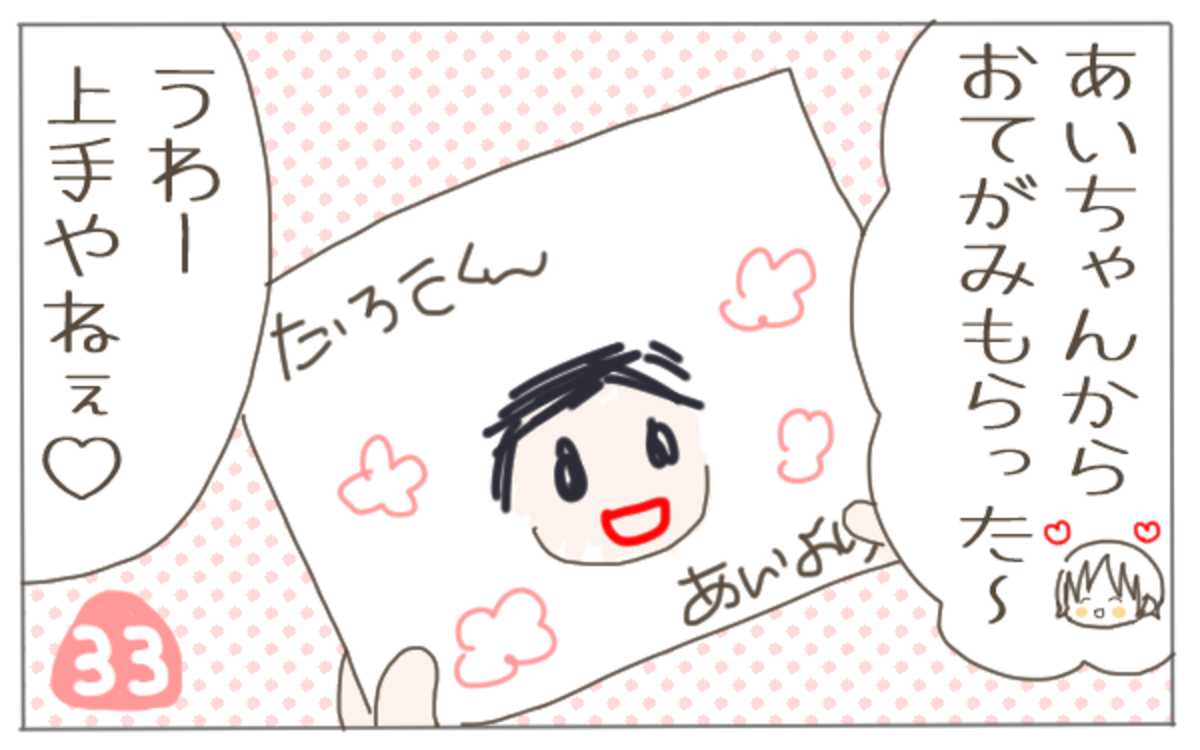 あいちゃんから
おてがみもらった〜
うわー
上手やねぇ♡
たろさくん
あいより
33